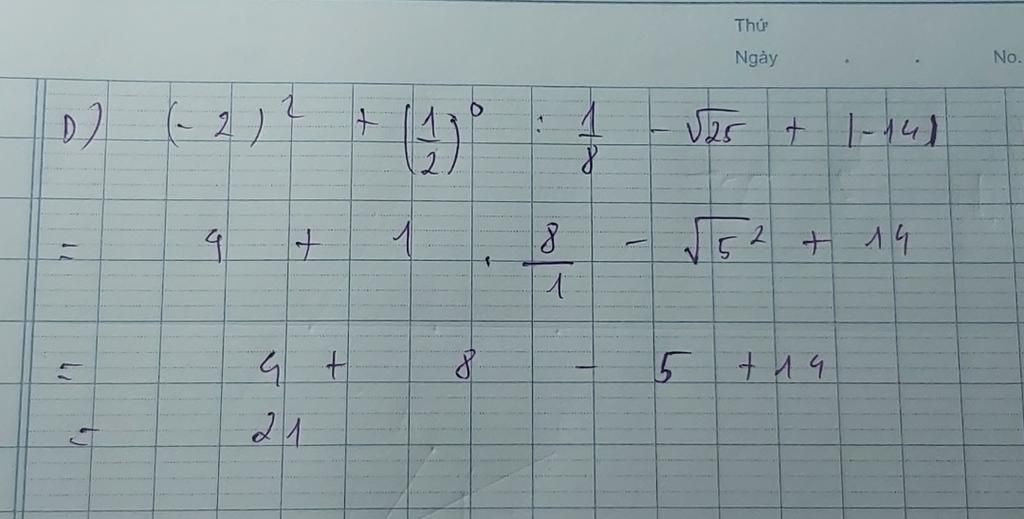 Thứ
Ngày . . No.
D) (-2)² + (1/2)⁰ : 1/8 - √25 + |-14|
= 4 + 1 . 8/1 - √5² + 14
= 4 + 8 - 5 + 14
= 21